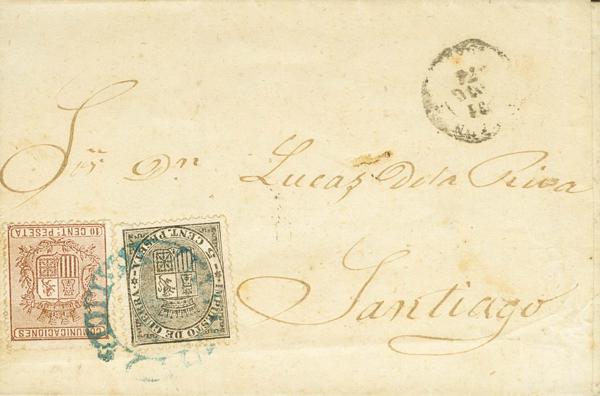 Sr. Dn. Lucas de la Riva
Santiago
10 CENT. PESETA
COMUNICACIONES
5 CENT. PESETA
IMPUESTO DE GUERRA
31
74